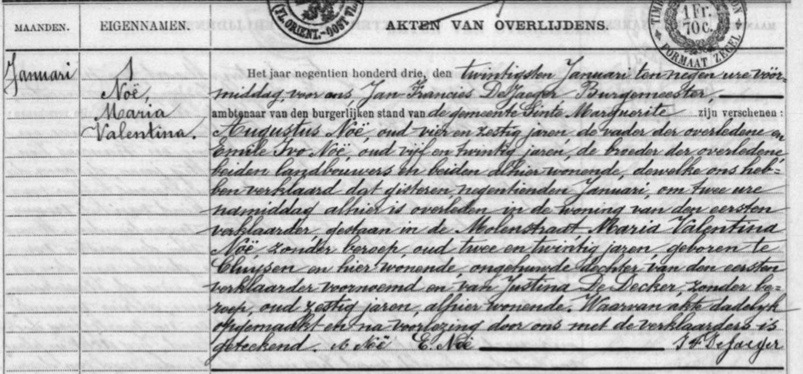 MAANDEN. EIGENNAMEN. AKTEN VAN OVERLIJDENS.
1 Fr. 70 c.
FORMAAT ZEGEL
Januari
1
Noë
Maria
Valentina.
Het jaar negentien honderd drie, den twintigsten Januari ten negen ure voor-
middag, voor ons Jan Francies De Jaeger Burgemeester,
ambtenaar van den burgerlijken stand van de gemeente Sinte Marguerite zijn verschenen :
Augustus Noë, oud vier en zestig jaren de vader der overledene en
Emile Ivo Noë, oud vijf en twintig jaren, de broeder der overledene
beiden landbouwers en beiden alhier wonende, dewelke ons heb-
ben verklaard dat gisteren negentienden Januari, om twee ure
namiddag alhier is overleden in de woning van den eersten
verklaarder gestaan in de Molenstraat Maria Valentina
Noë zonder beroep, oud twee en twintig jaren geboren te
Cluijsen en hier wonende, ongehuwde dochter van den eersten
verklaarder voornoemd en van Justina De Decker zonder be-
roep, oud zestig jaren, alhier wonende. Waarvan akte dadelyk
opgemaakt en na voorlezing door ons met de verklaarders is
geteekend. A Noë E. Noë J F De Jaeger